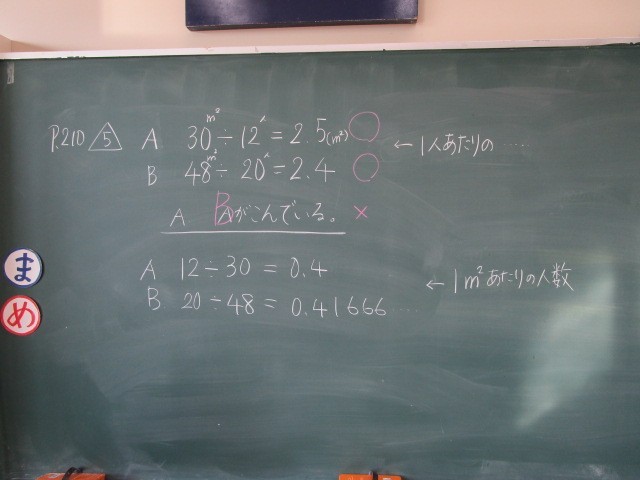 P.210 5 A 30m²÷12人=2.5(m²) ○ ←1人あたりの‥‥
B 48m²÷20人=2.4 ○
A Bがこんでいる。 ×
A 12÷30=0.4
B 20÷48=0.41666‥‥ ←1m²あたりの人数
ま
め